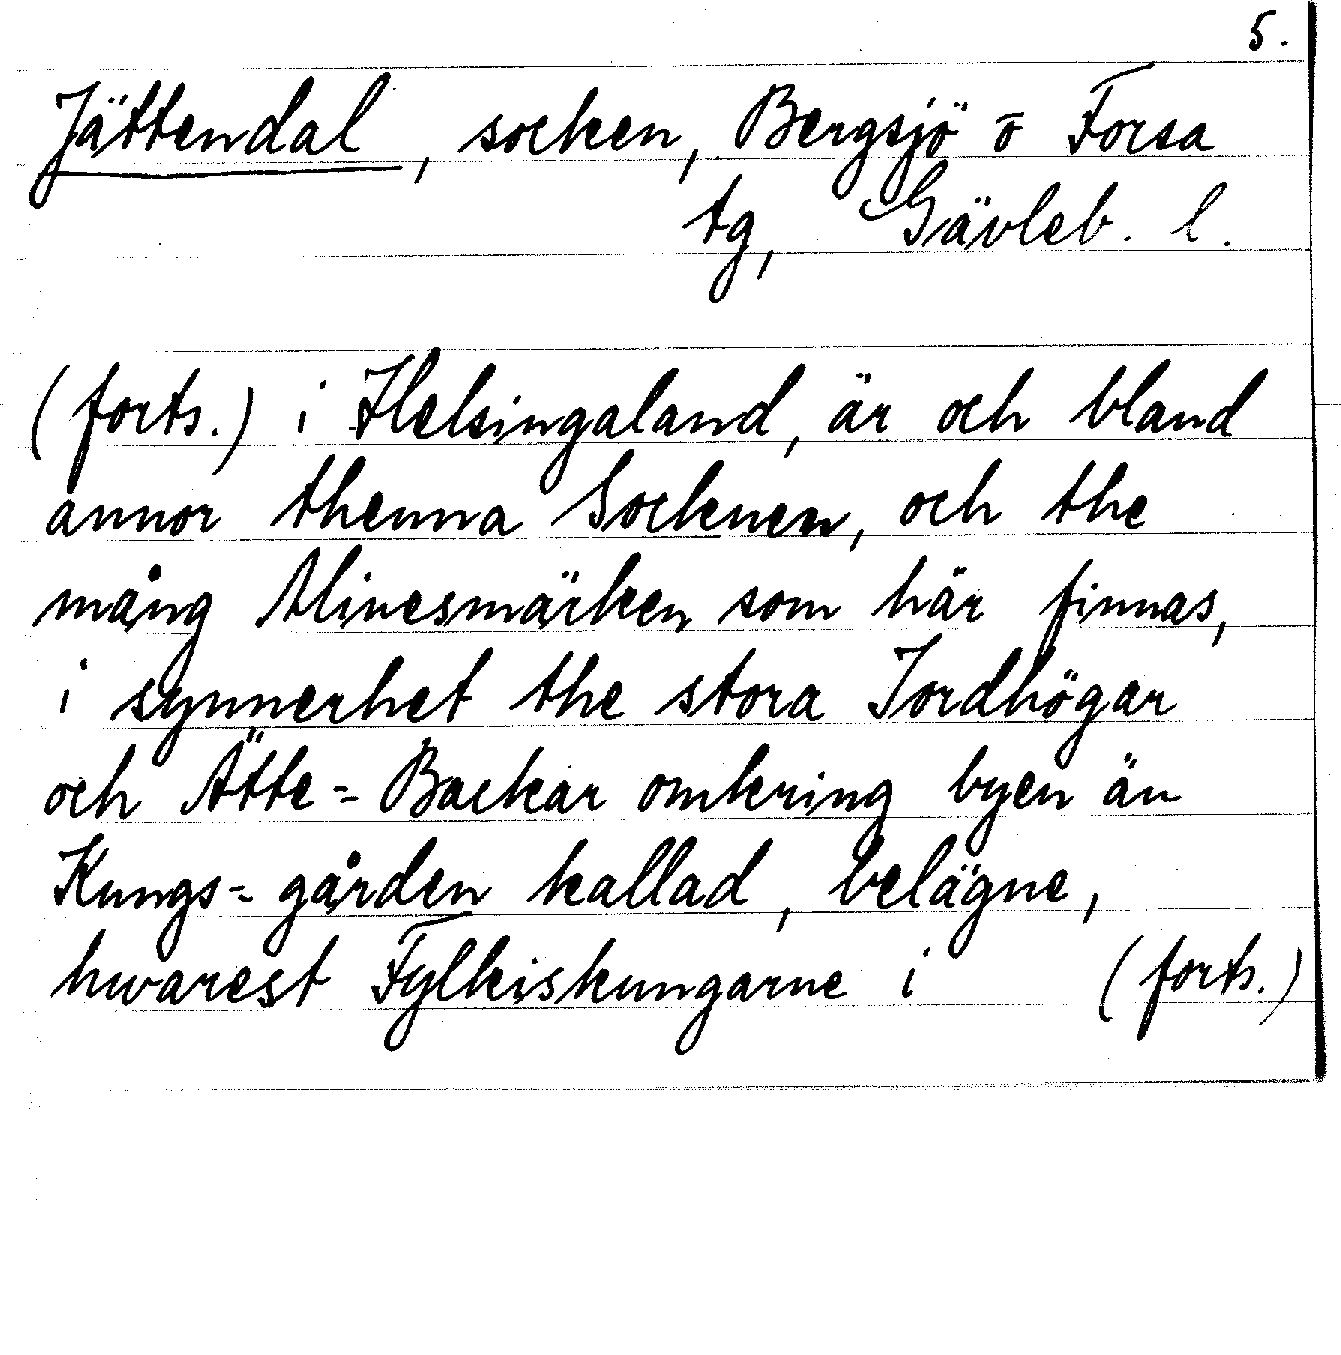 5.
Jättendal, socken, Bergsjö o Forsa
tg, Gävleb. l.
(forts.) i Helsingaland, är och bland
annor thenna Socknen, och the
mång Minesmärken som här finnas,
i synnerhet the stora Jordhögar
och Ätte-Backar omkring byen än
Kungs-gården kallad, belägne,
hwarest Fylkiskungarne i (forts.)